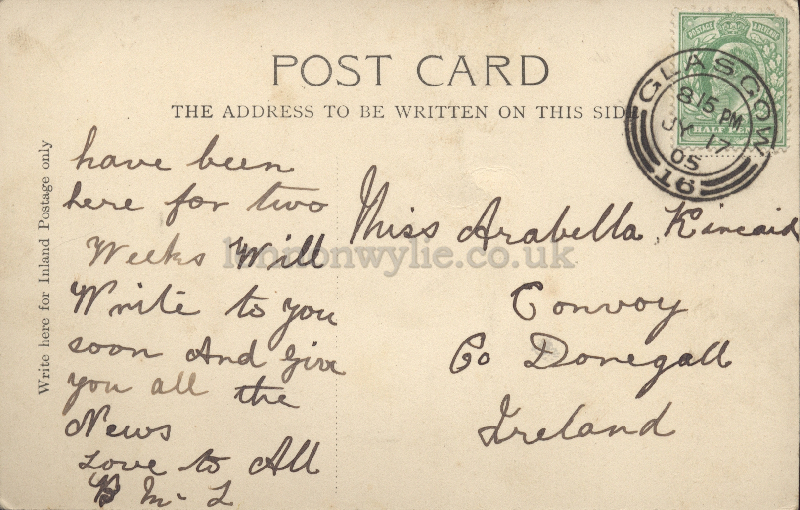 POST CARD
THE ADDRESS TO BE WRITTEN ON THIS SIDE
POSTAGE REVENUE
HALF PEN
GLASGOW
8 15 PM
JY 17
05
16
Write here for Inland Postage only
have been
here for two
Weeks Will
Write to you
soon And give
you all the
News
Love to All
B Mc L
Miss Arabella Kincaid
Convoy
Co Donegall
Ireland
lennonwylie.co.uk